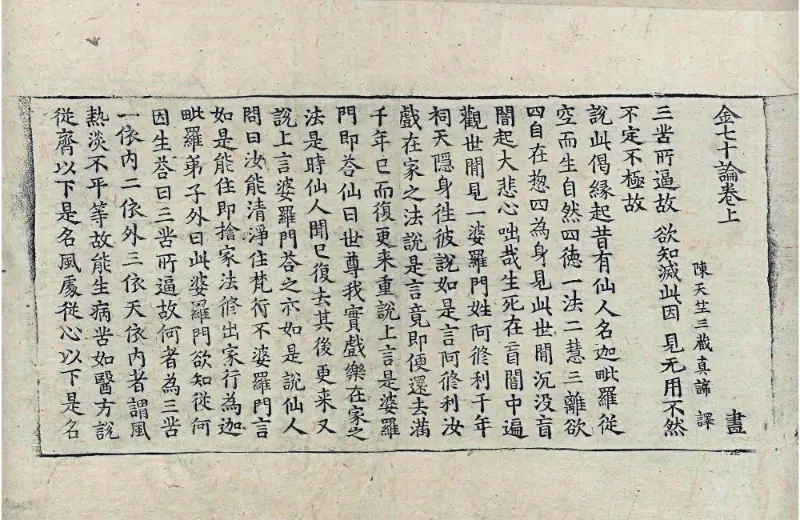 金七十論卷上　　　　　畫
陳天竺三藏真諦 譯
三苦所逼故 欲知滅此因 見无用不然
不定不極故
說此偈緣起昔有仙人名迦毗羅從
空而生自然四德一法二慧三離欲
四自在惣四為身見此世間沉没盲
闇起大悲心咄哉生死在盲闇中遍
觀世間見一婆羅門姓阿修利千年
祠天隱身徃彼說如是言阿修利汝
戲在家之法說是言竟即便還去滿
千年已而復更来重說上言是婆羅
門即荅仙曰世尊我實戲樂在家之
法是時仙人聞已復去其後更来又
說上言婆羅門荅之亦如是說仙人
問曰汝能清淨住梵行不婆羅門言
如是能住即捨家法修出家行為迦
毗羅弟子外曰此婆羅門欲知從何
因生荅曰三苦所逼故何者為三苦
一依内二依外三依天依内者謂風
熱淡不平等故能生病苦如醫方說
從齊以下是名風處從心以下是名